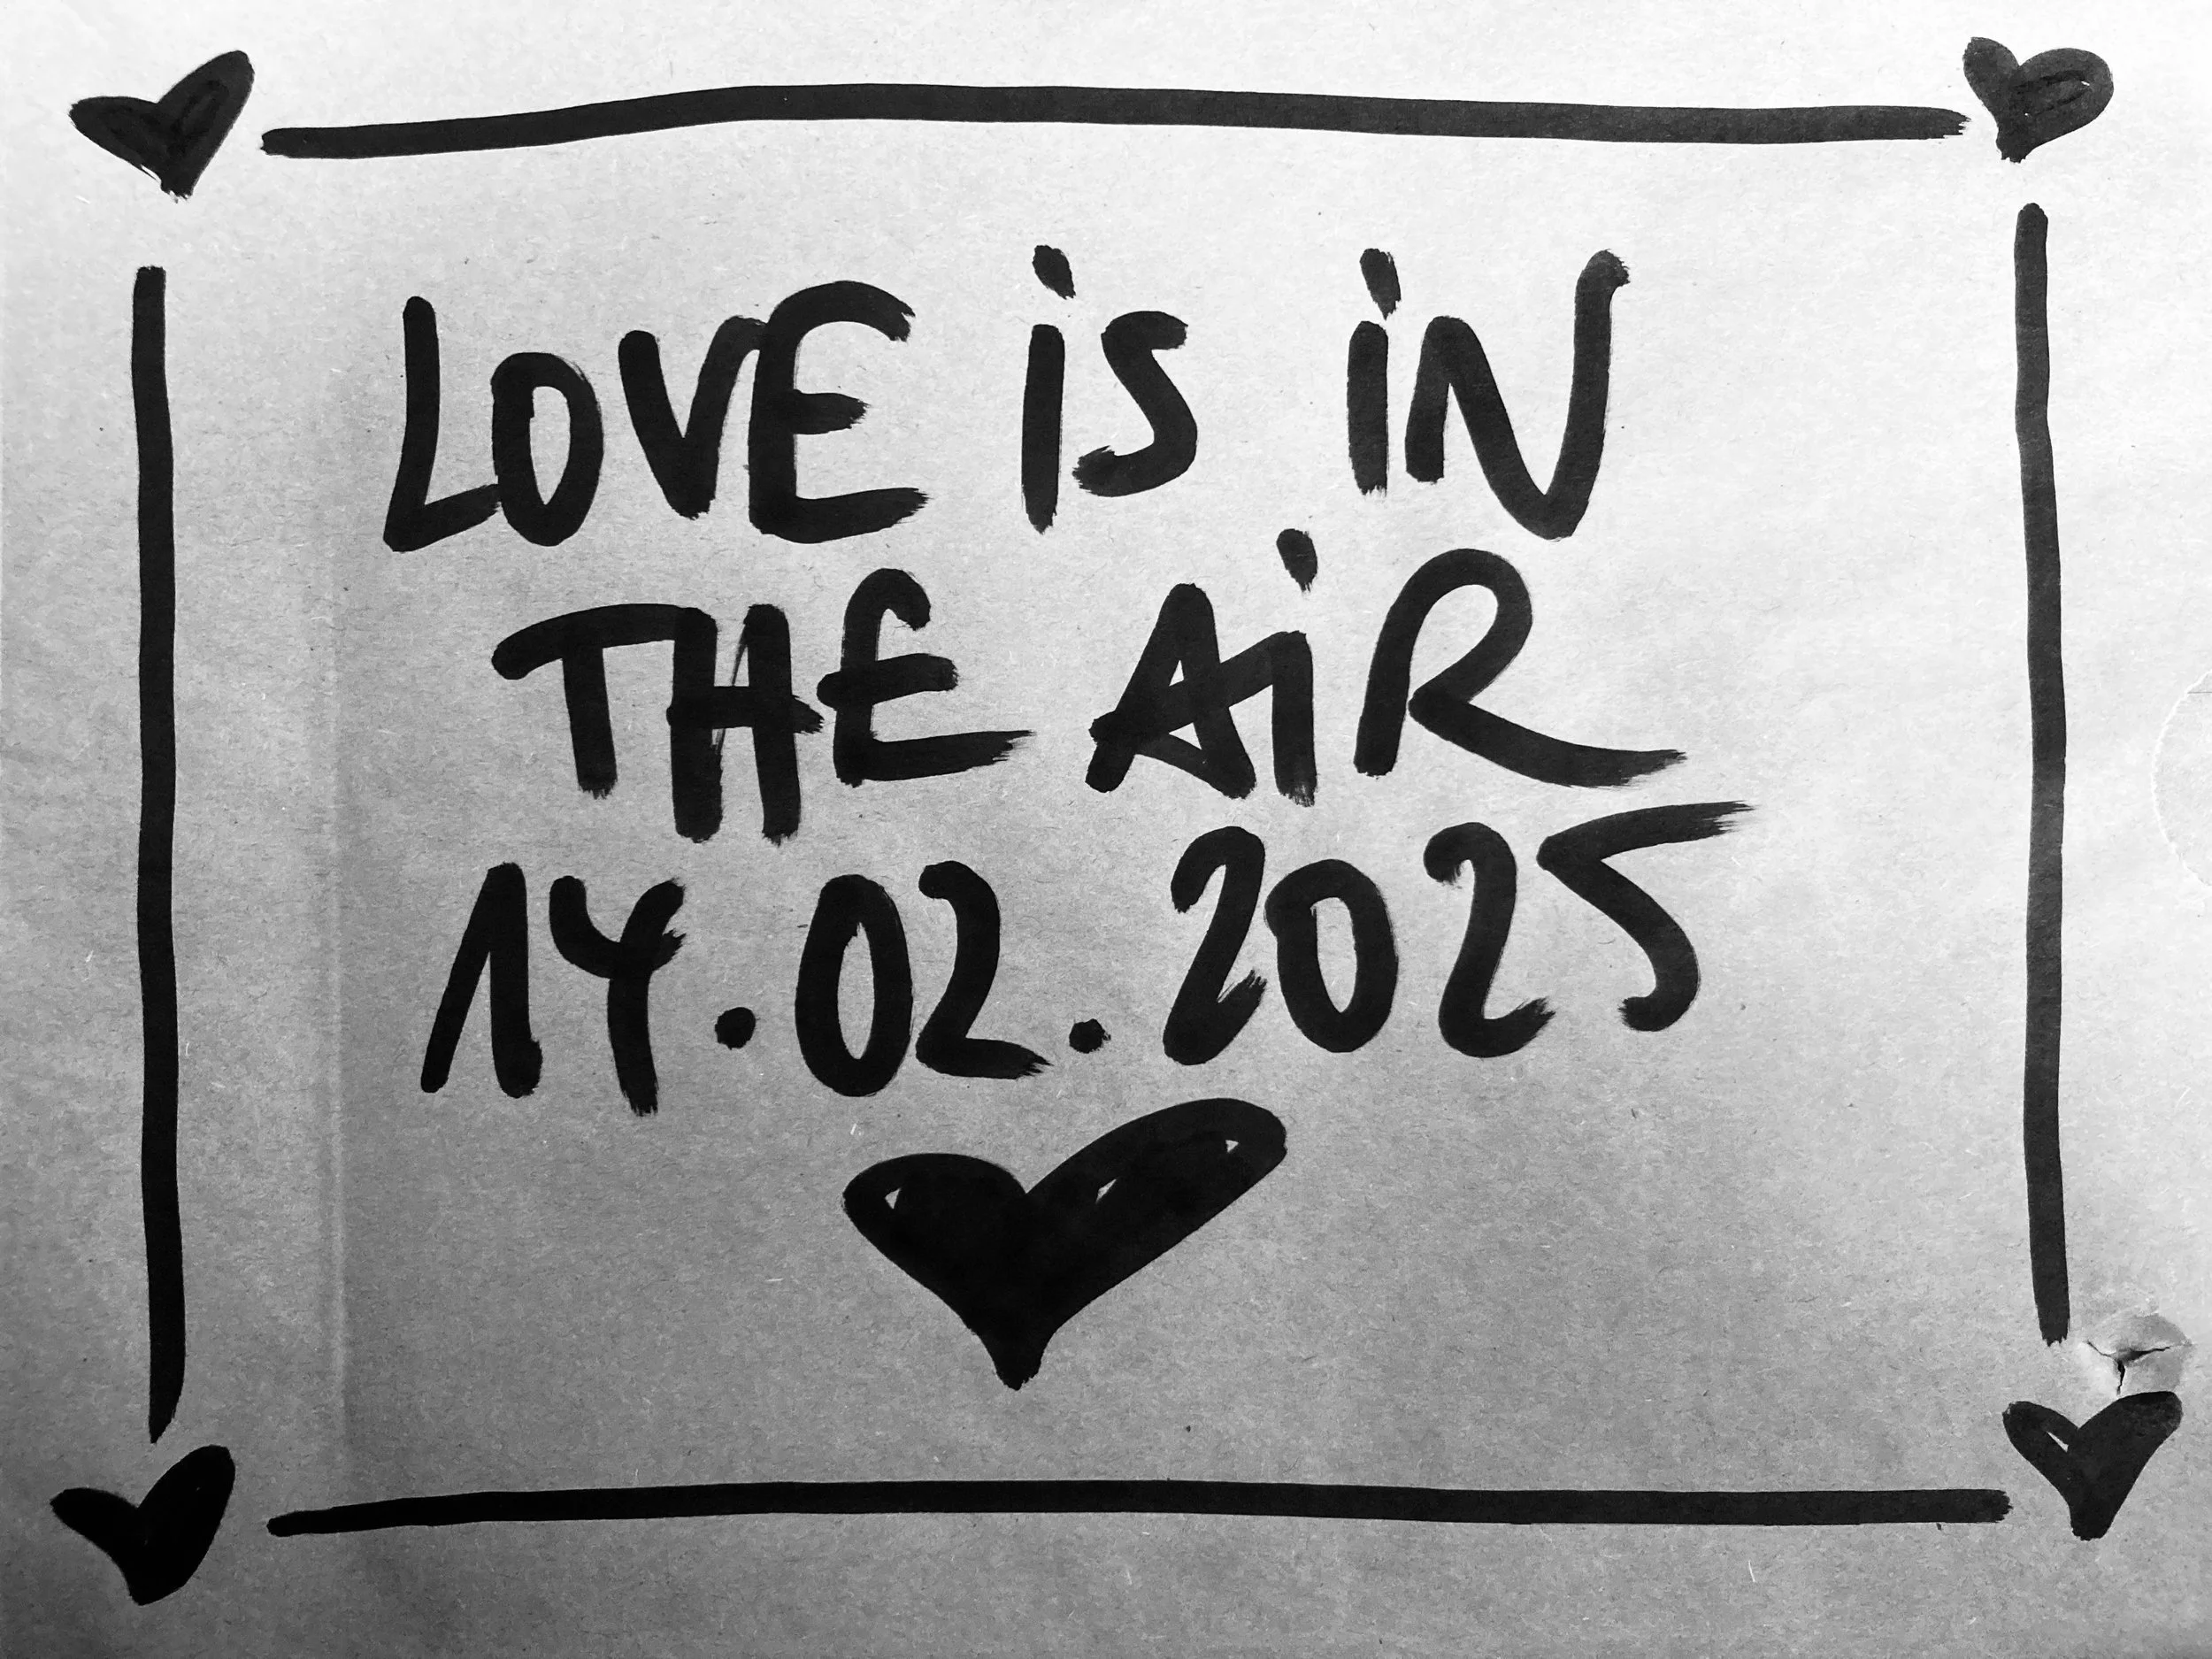 LOVE iS iN
THE AiR
14.02.2025